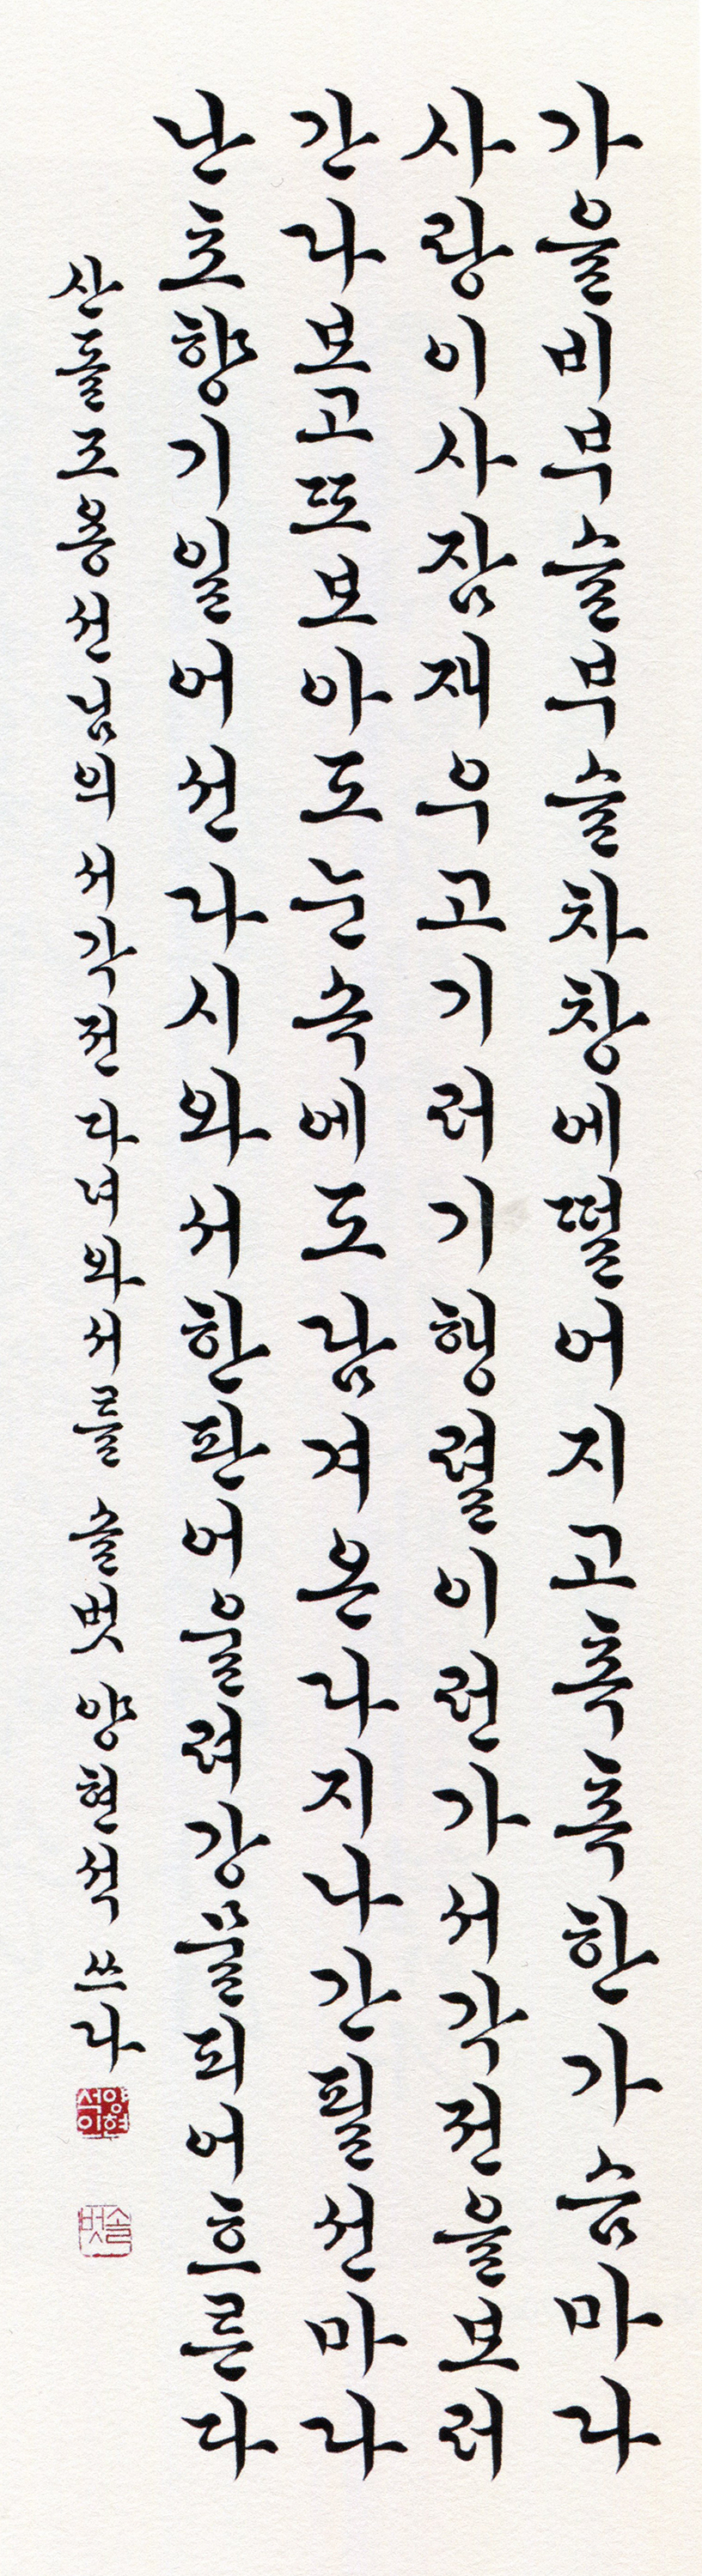 가을비부슬부슬차창에떨어지고촉촉한가슴마다
사랑이사잠재우고기러기행렬이런가서각전을보러
간다보고또보아도눈속에도담겨온다지나간필선마다
난초향기일어선다시와서한판어울려강물되어흐른다
산돌조용선님의 서각전 다녀와서를 솔벗 양현석 쓰다
양현석이
솔벗